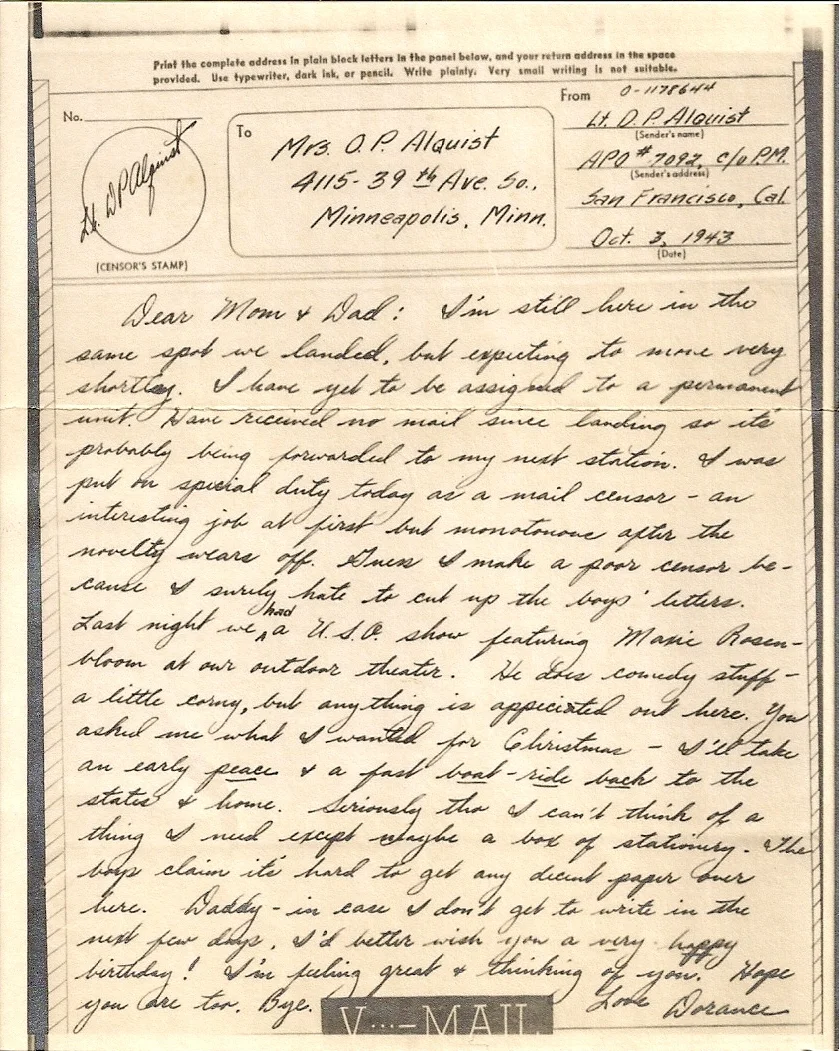 Print the complete address in plain block letters in the panel below, and your return address in the space
provided. Use typewriter, dark ink, or pencil. Write plainly. Very small writing is not suitable.
No.
Lt. D P Alquist
(CENSOR'S STAMP)
To
Mrs. O. P. Alquist
4115-39th Ave. So.,
Minneapolis, Minn.
From
O-1178644
Lt. D. P. Alquist
(Sender's name)
APO # 7092, c/o P.M.
(Sender's address)
San Francisco, Cal.
Oct. 3, 1943
(Date)
Dear Mom & Dad: I'm still here in the
same spot we landed, but expecting to move very
shortly. I have yet to be assigned to a permanent
unit. Have received no mail since landing so it's
probably being forwarded to my next station. I was
put on special duty today as a mail censor - an
interesting job at first but monotonous after the
novelty wears off. Guess I make a poor censor be-
cause I surely hate to cut up the boys' letters.
Last night we had a U.S.O. show featuring Maxie Rosen-
bloom at our outdoor theater. He does comedy stuff -
a little corny, but anything is appiciated out here. You
asked me what I wanted for Christmas - I'll take
an early peace & a fast boat-ride back to the
states & home. Seriously tho I can't think of a
thing I need except maybe a box of stationery. The
boys claim it's hard to get any decent paper over
here. Daddy - in case I don't get to write in the
next few days, I'd better wish you a very happy
birthday! I'm feeling great & thinking of you. Hope
you are too. Bye. Love Dorance
V···—MAIL